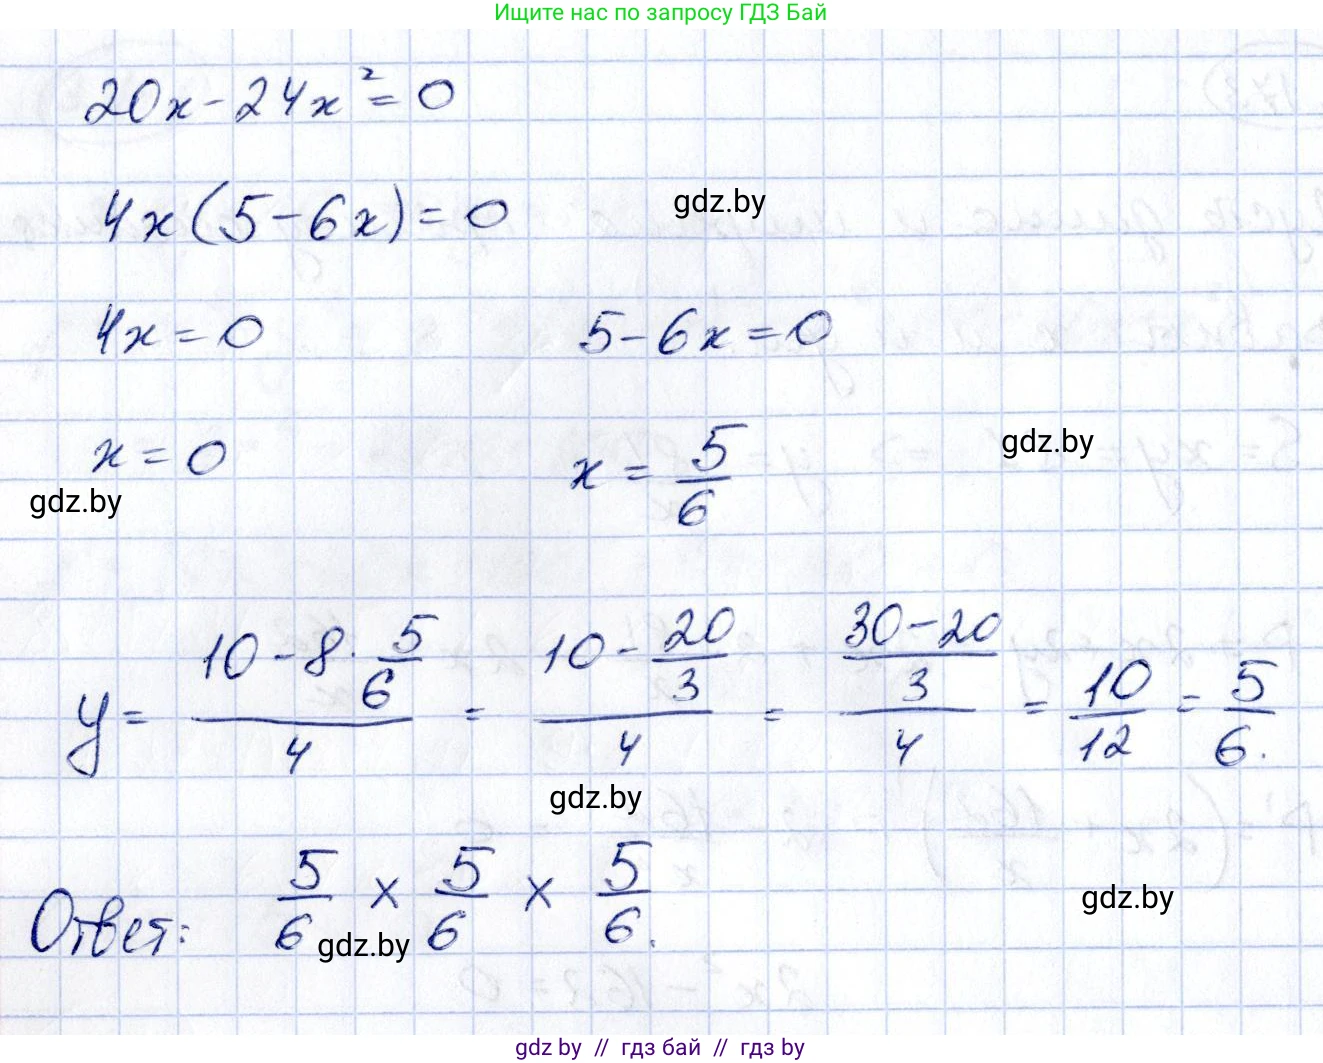 Ищите нас по запросу ГДЗ Бай
20x - 24x² = 0
4x(5 - 6x) = 0
gdz.by
4x = 0 5 - 6x = 0
x = 0 x = 5/6
gdz.by
gdz.by
y = (10 - 8 · 5/6)/4 = (10 - 20/3)/4 = ((30 - 20)/3)/4 = 10/12 = 5/6.
gdz.by
Ответ: 5/6 × 5/6 × 5/6.
gdz.by
gdz.by
gdz by // гдз бай // гдз by